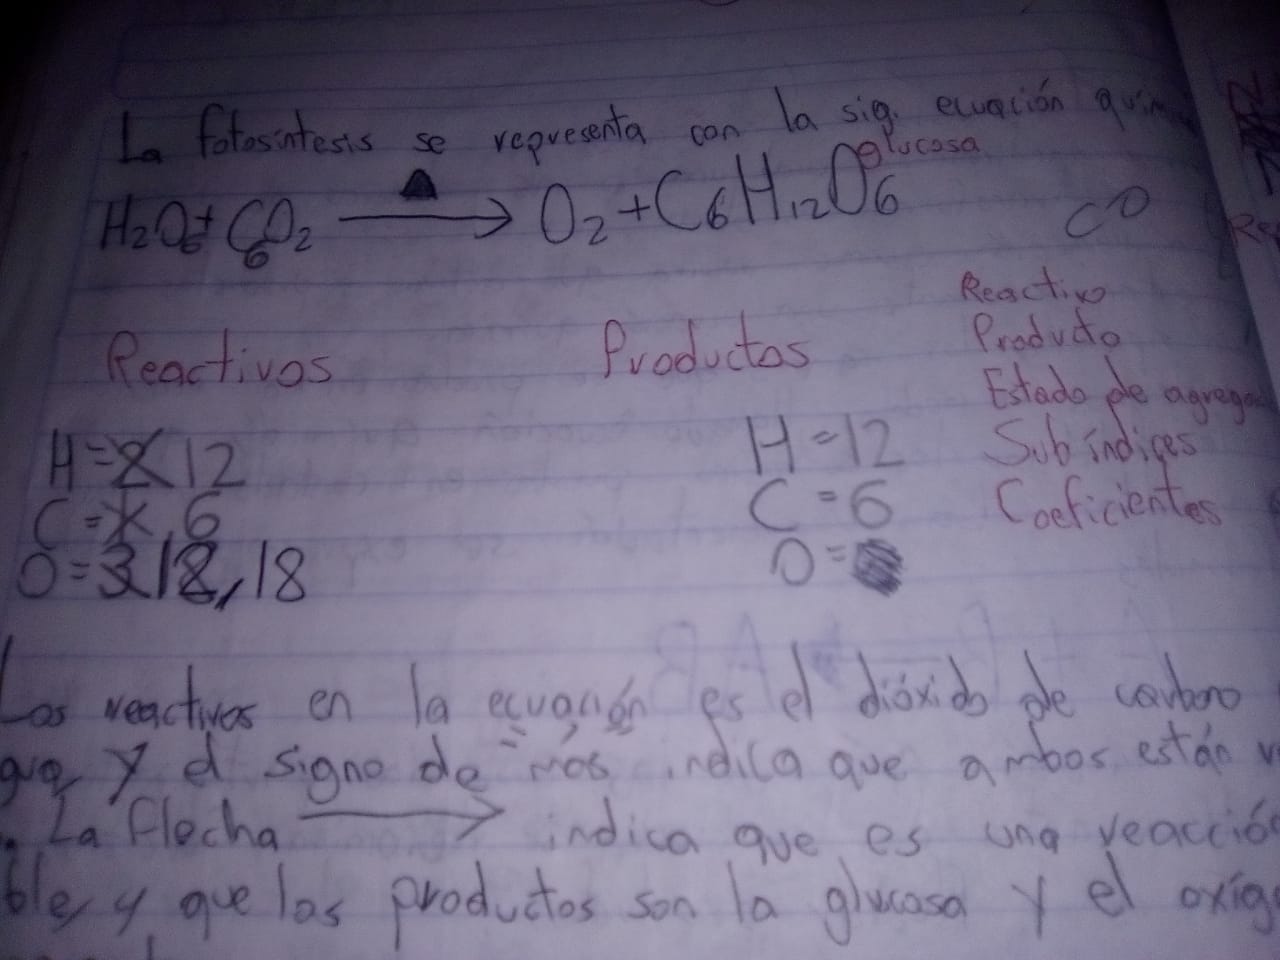 La fotosíntesis se representa con la sig. ecuación
glucosa
H2O6 + C6O2 → O2 + C6H12O6
CO
Reactivos
Productos
Reactivo
Producto
Estado de
Subíndices
Coeficientes
H = 2 12
C = 1, 6
O = 3 12, 18
H = 12
C = 6
O =
Los reactivos en la ecuación es el dióxido de carbono
y el signo de "más" indica que ambos están
La flecha → indica que es una
y que los productos son la glucosa y el